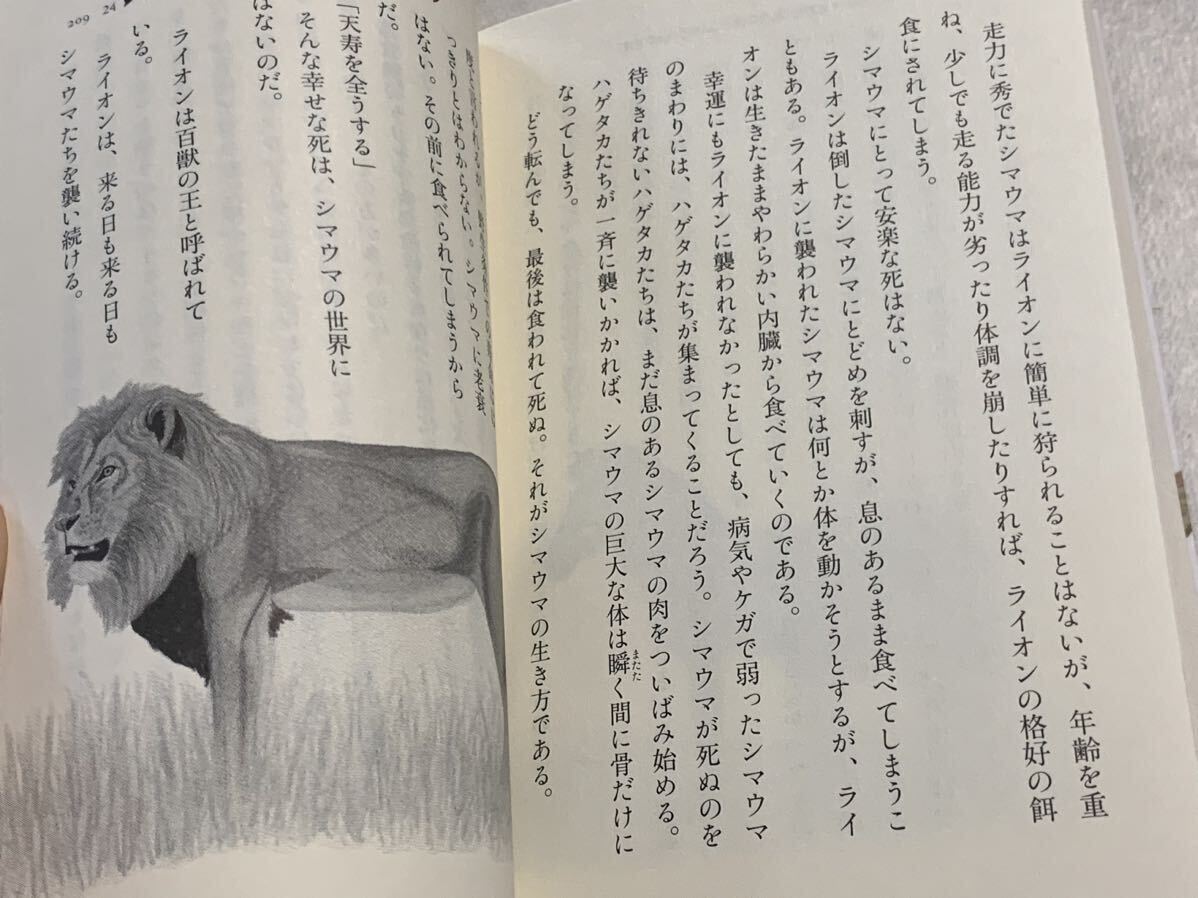 走力に秀でたシマウマはライオンに簡単に狩られることはないが、年齢を重
ね、少しでも走る能力が劣ったり体調を崩したりすれば、ライオンの格好の餌
食にされてしまう。
シマウマにとって安楽な死はない。
ライオンは倒したシマウマにとどめを刺すが、息のあるまま食べてしまうこ
ともある。ライオンに襲われたシマウマは何とか体を動かそうとするが、ライ
オンは生きたままやわらかい内臓から食べていくのである。
幸運にもライオンに襲われなかったとしても、病気やケガで弱ったシマウマ
のまわりには、ハゲタカたちが集まってくることだろう。シマウマが死ぬのを
待ちきれないハゲタカたちは、まだ息のあるシマウマの肉をついばみ始める。
ハゲタカたちが一斉に襲いかかれば、シマウマの巨大な体は瞬く間に骨だけに
またた
なってしまう。
どう転んでも、最後は食われて死ぬ。それがシマウマの生き方である。
っきりとはわからない。シマウマに老衰
はない。その前に食べられてしまうから
だ。
「天寿を全うする」
そんな幸せな死は、シマウマの世界に
はないのだ。
ライオンは百獣の王と呼ばれて
いる。
ライオンは、来る日も来る日も
シマウマたちを襲い続ける。
209 24